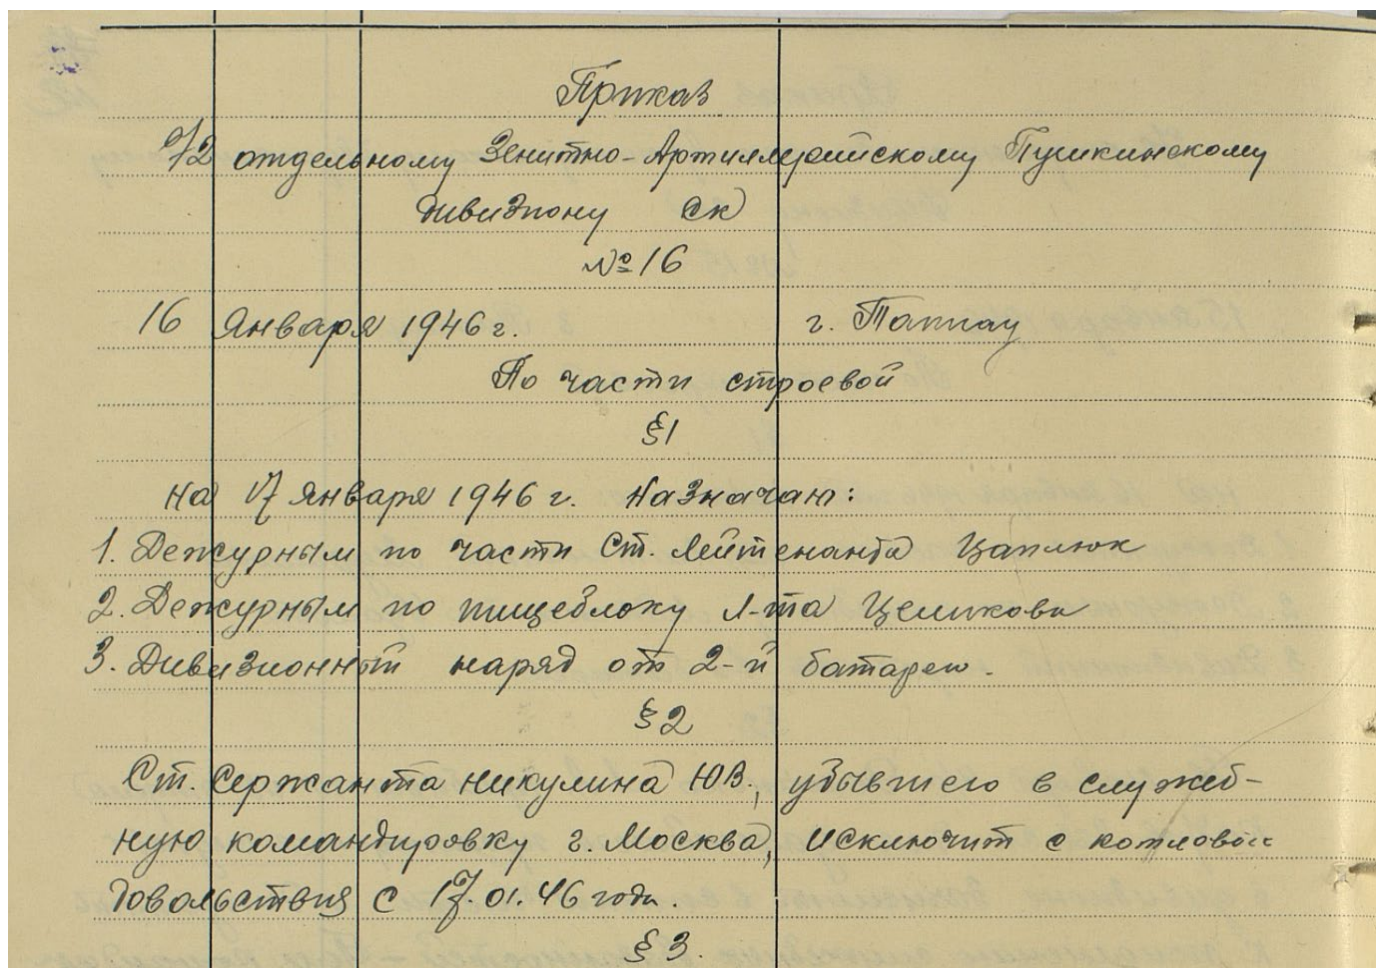 Приказ
72 отдельному Зенитно-Артиллерийскому Пушкинскому
дивизиону СК
№ 16
16 Января 1946 г. г. Таппау
По части строевой
§1
На 17 Января 1946 г. Назначаю:
1. Дежурным по части Ст. Лейтенанта Цаплюк
2. Дежурным по пищеблоку л-та Целикова
3. Дивизионный наряд от 2-й батареи.
§2
Ст. Сержанта Никулина ЮВ., убывшего в служеб-
ную командировку г. Москва, исключит с котловой
довольствия с 17.01.46 года.
§3.